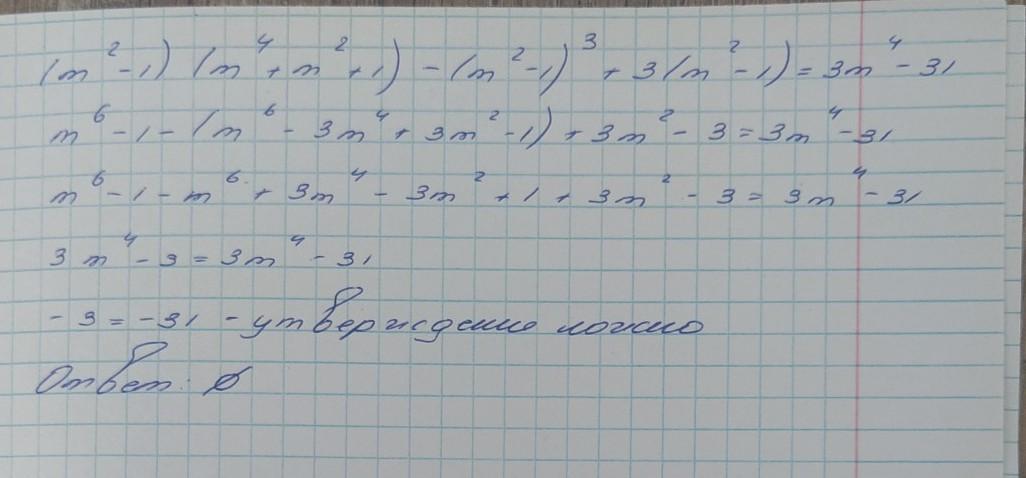 (m² - 1) (m⁴ + m² + 1) - (m² - 1)³ + 3(m² - 1) = 3m⁴ - 31
m⁶ - 1 - (m⁶ - 3m⁴ + 3m² - 1) + 3m² - 3 = 3m⁴ - 31
m⁶ - 1 - m⁶ + 3m⁴ - 3m² + 1 + 3m² - 3 = 3m⁴ - 31
3m⁴ - 3 = 3m⁴ - 31
- 3 = -31 - утверждение ложно
Ответ: ∅